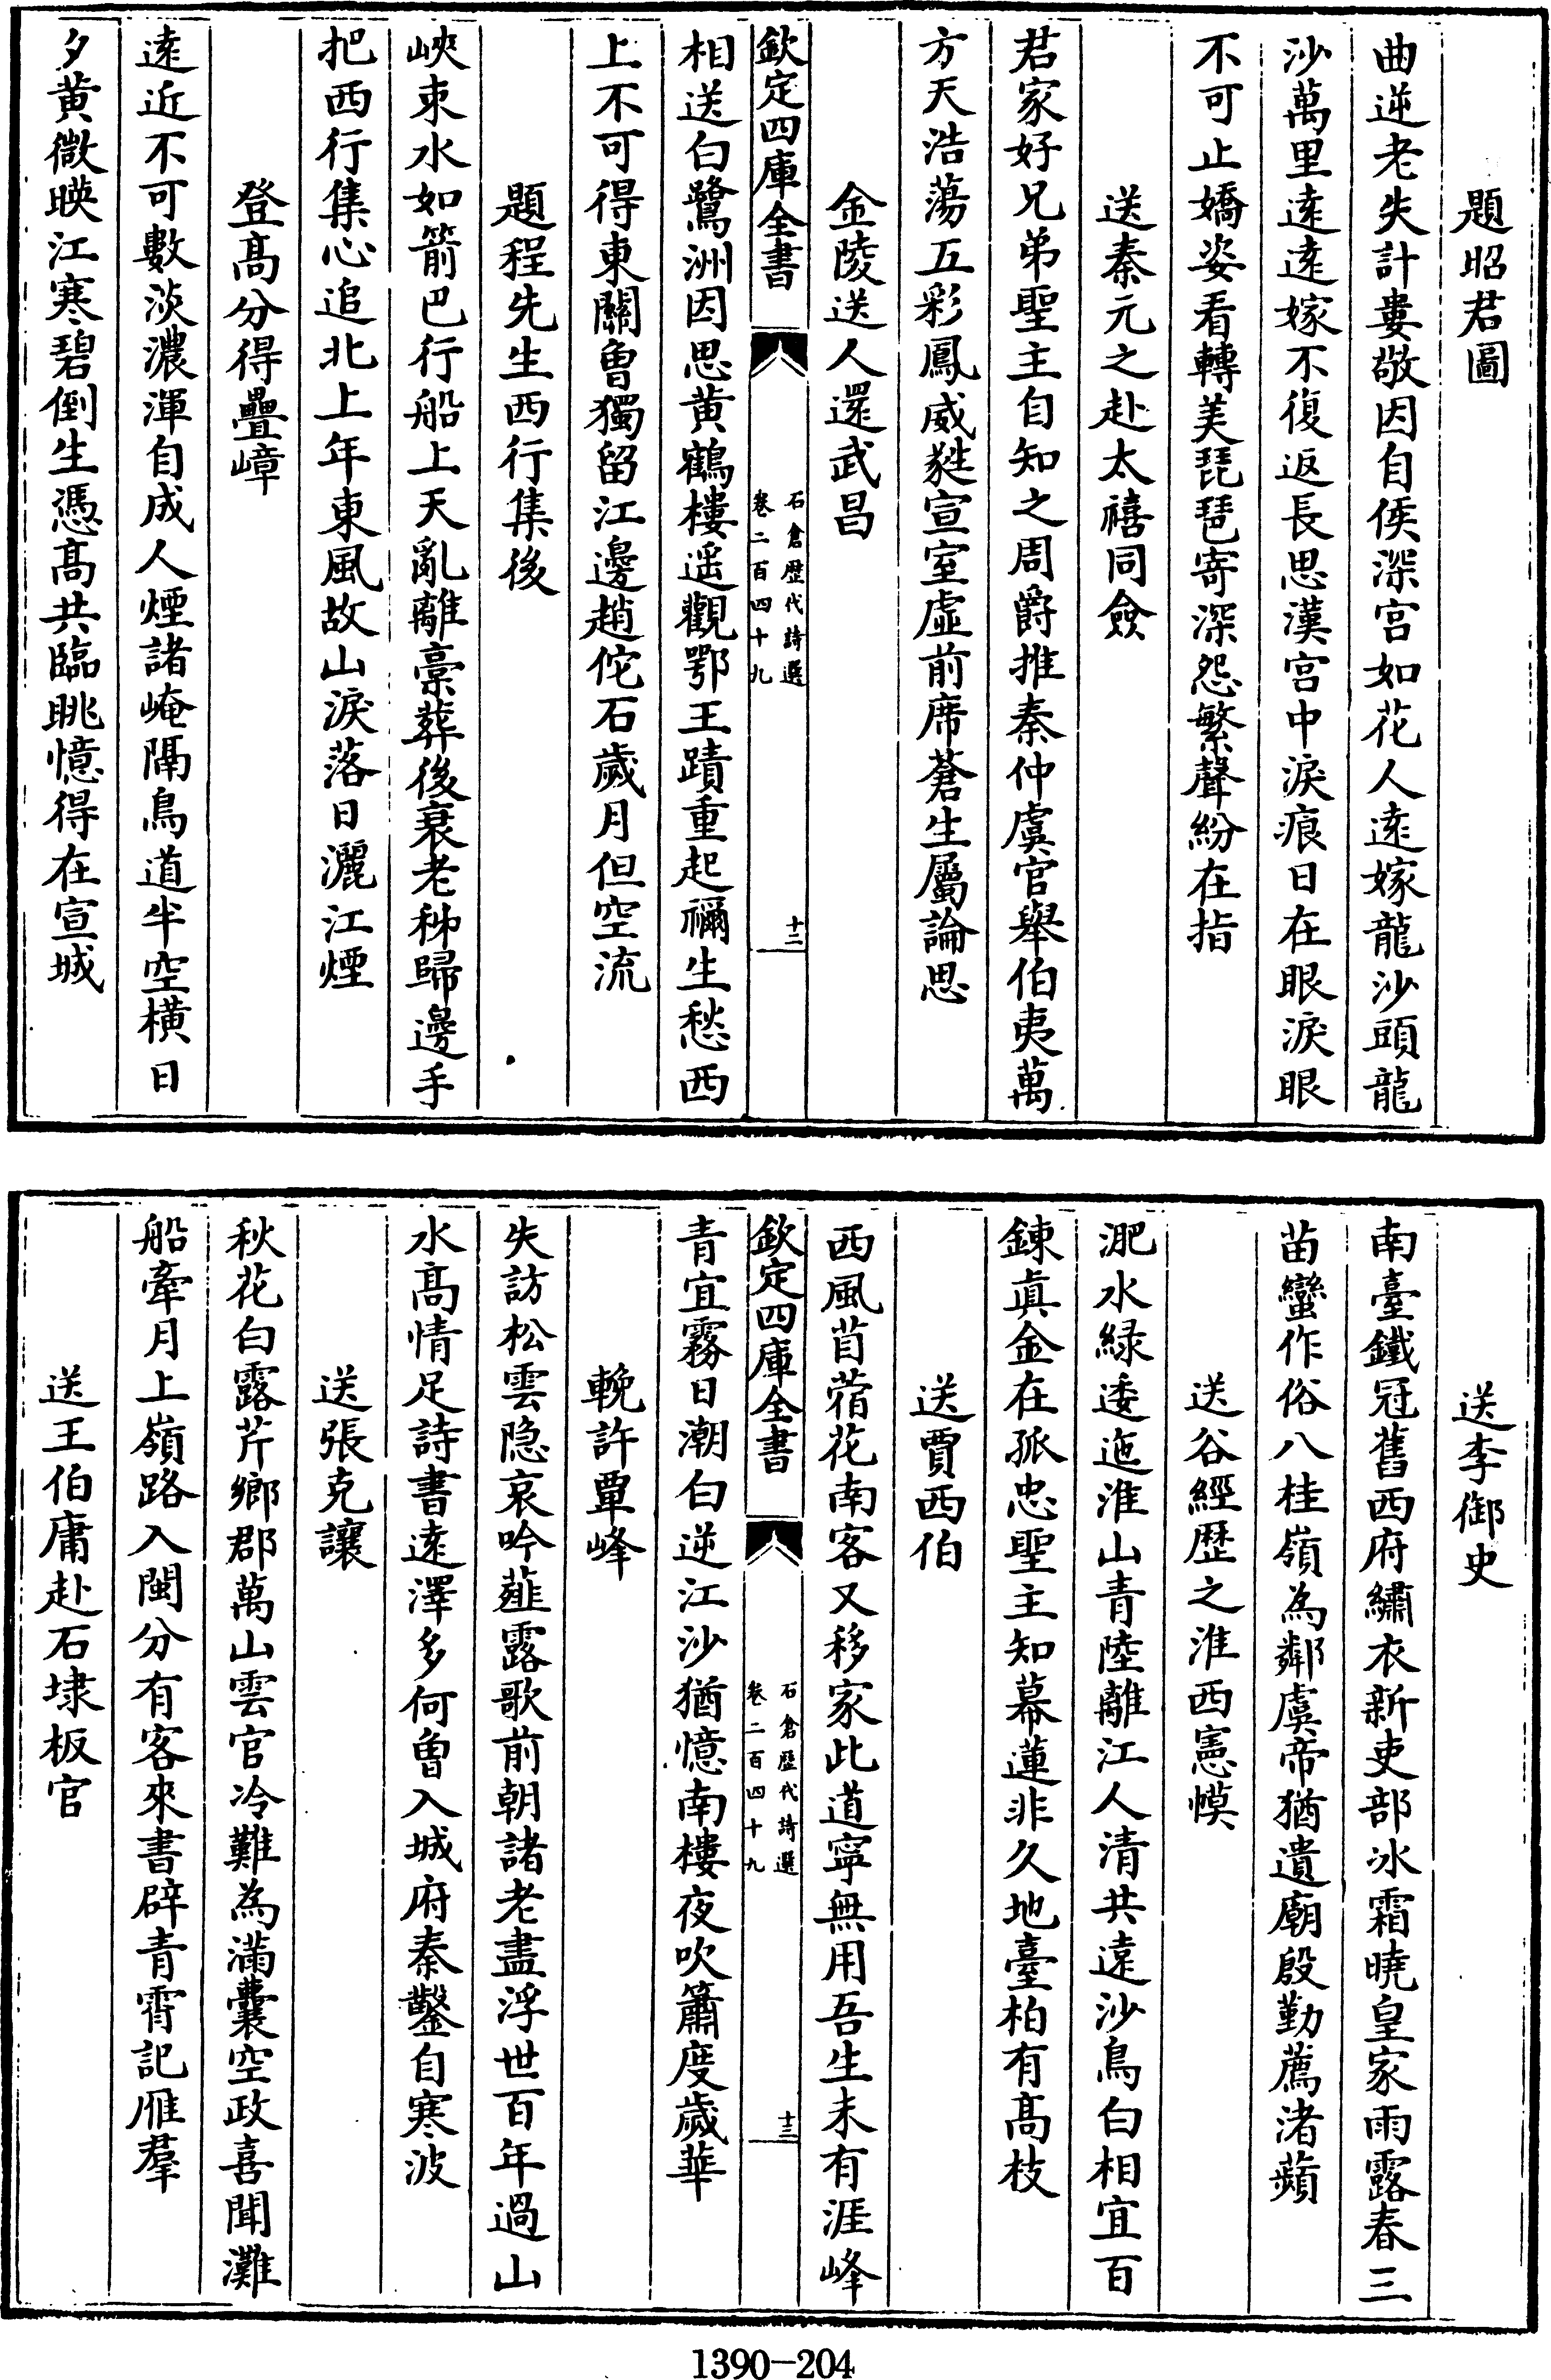 題昭君圖
曲逆老失計婁敬因自侯深宮如花人遠嫁龍沙頭龍
沙萬里遠遠嫁不復返長思漢宮中淚痕日在眼淚眼
不可止嬌姿看轉美琵琶寄深怨繁聲紛在指
送秦元之赴太禧同僉
君家好兄弟聖主自知之周爵推秦仲虞官舉伯夷萬
方天浩蕩五彩鳳威甤宣室虛前席蒼生屬論思
金陵送人還武昌
欽定四庫全書
石倉歷代詩選
卷二百四十九
十二
相送白鷺洲因思黄鶴樓遥觀鄂王蹟重起禰生愁西
上不可得東關曾獨留江邊趙佗石歲月但空流
題程先生西行集後
峽束水如箭巴行船上天亂離稾葬後衰老秭歸邊手
把西行集心追北上年東風故山淚落日灑江煙
登髙分得疊嶂
遠近不可數淡濃渾自成人煙諸崦隔鳥道半空橫日
夕黄微暎江寒碧倒生憑髙共臨眺憶得在宣城
送李御史
南臺鐵冠舊西府繡衣新吏部冰霜曉皇家雨露春三
苗蠻作俗八桂嶺為鄰虞帝猶遺廟殷勤薦渚蘋
送谷經歴之淮西憲幙
淝水緑逶迤淮山青陸離江人清共遠沙鳥白相宜百
鍊真金在孤忠聖主知幕蓮非久地臺柏有髙枝
送賈西伯
西風苜蓿花南客又移家此道寧無用吾生未有涯峰
欽定四庫全書
石倉歷代詩選
卷二百四十九
十三
青宜霧日潮白逆江沙猶憶南樓夜吹簫度歲華
輓許覃峰
失訪松雲隐哀吟薤露歌前朝諸老盡浮世百年過山
水髙情足詩書遠澤多何曾入城府秦鑿自寒波
送張克讓
秋花白露芹鄉郡萬山雲官冷難為滿囊空政喜聞灘
船牽月上嶺路入閩分有客來書辟青霄記雁羣
送王伯庸赴石埭板官
1390-204